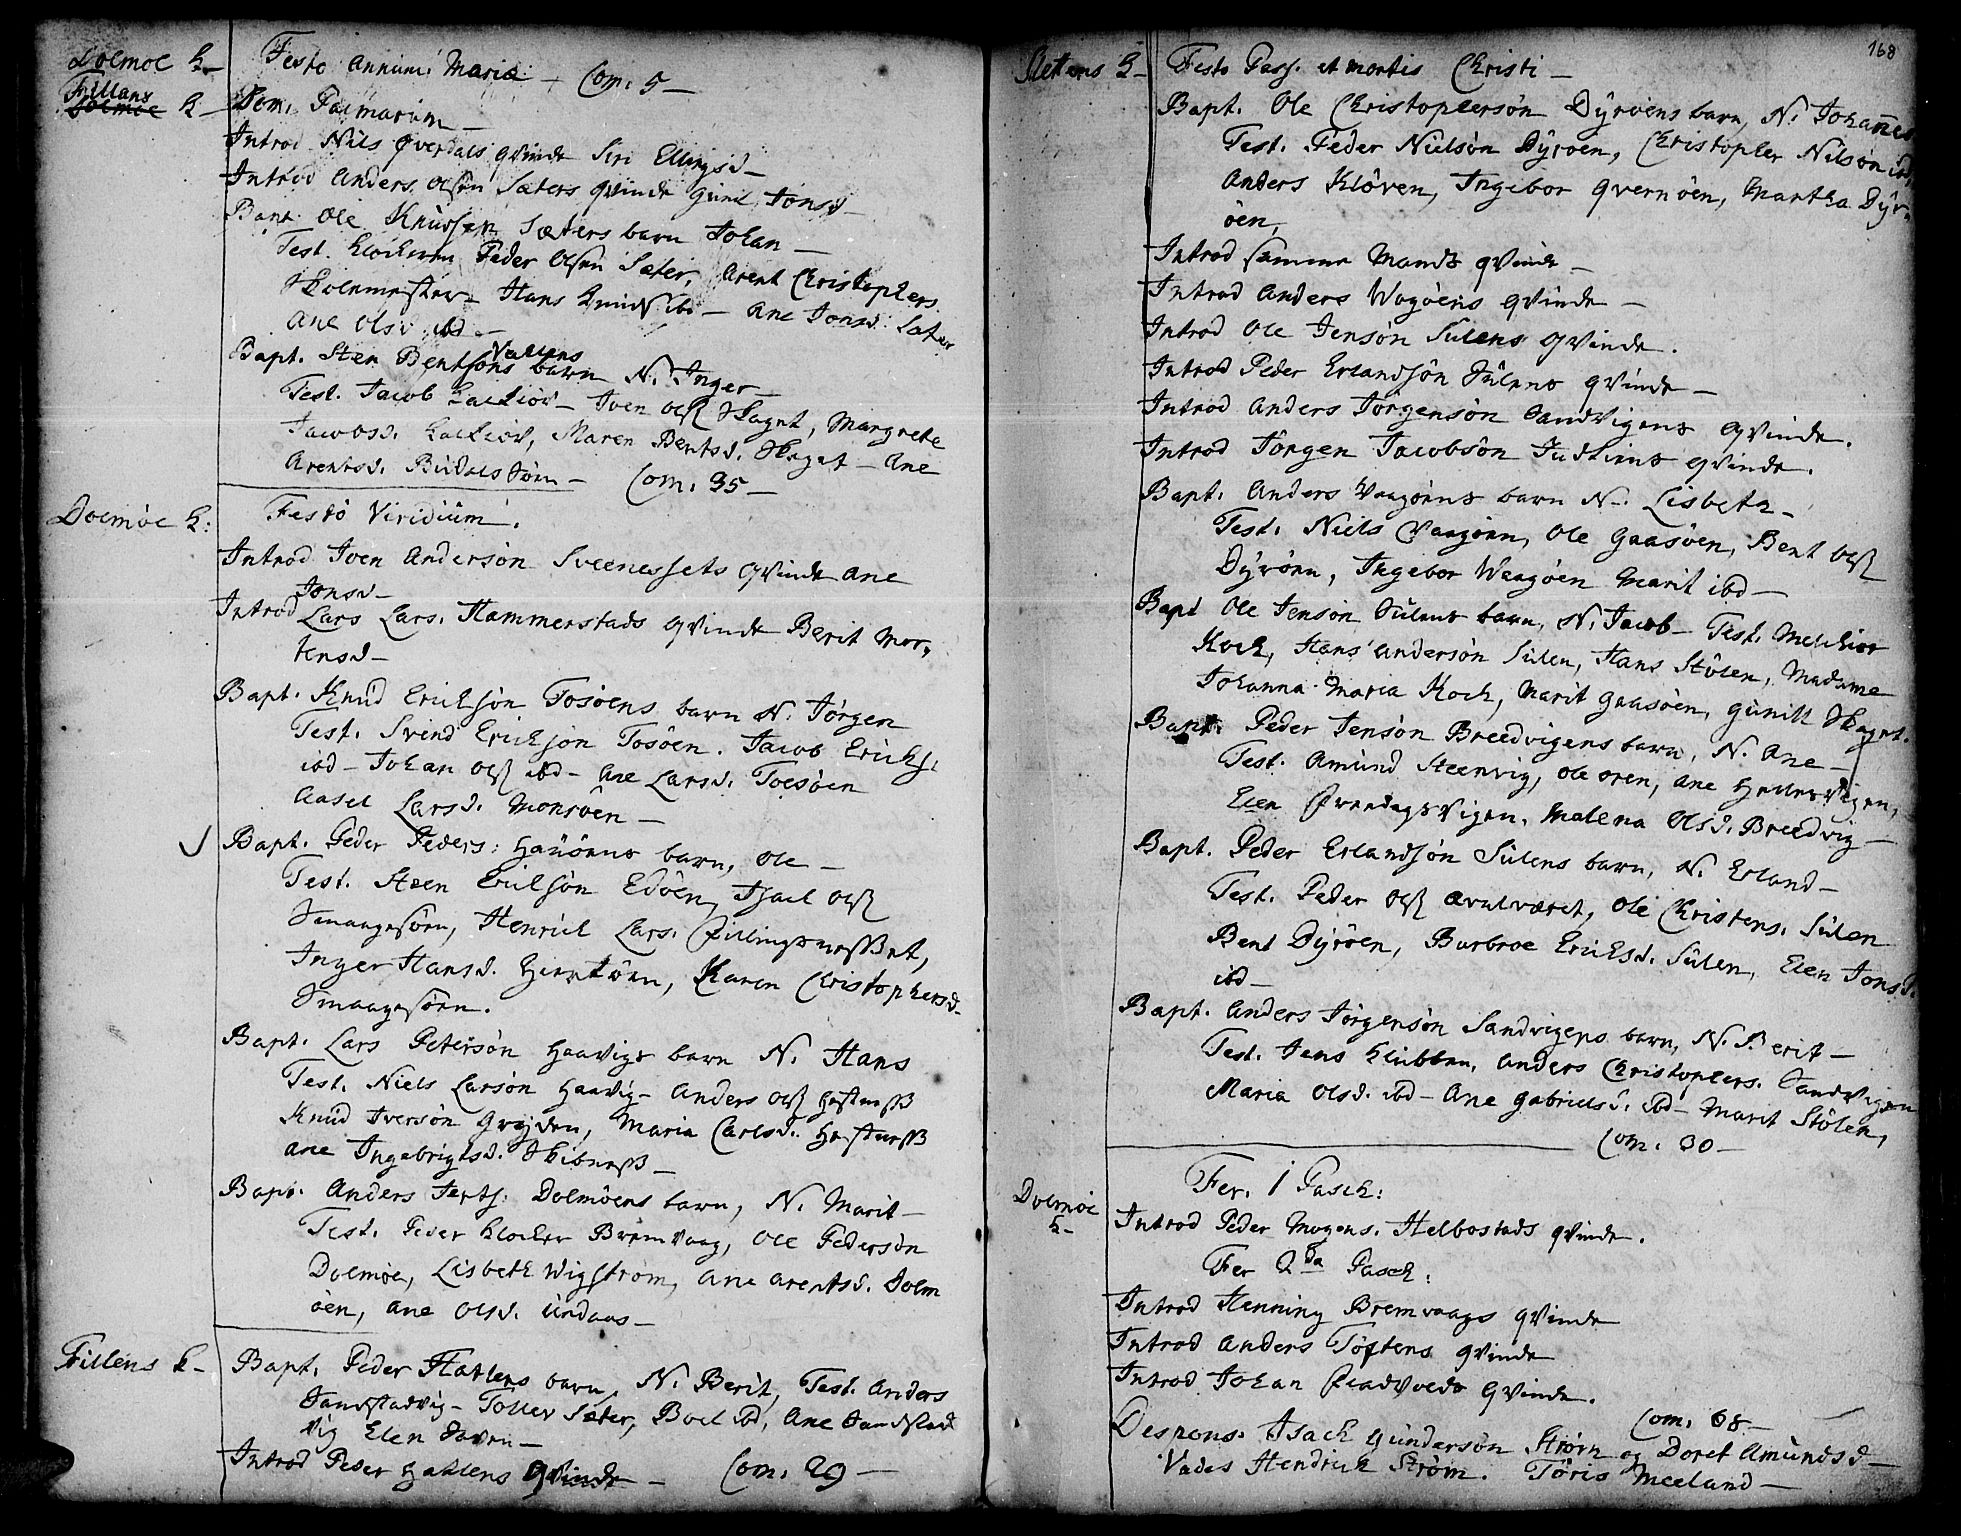 Dolmøe K- Festo Annunc: Mariæ - Com: 5 -
Fillans
Dolmøe K - Dom. Palmarum -
Introd Nils Øverdals qvinde Siri Ellingsd -
Introd Anders Olsøn Sæters qvinde Gunil Jonsd -
Bapt Ole Knudsøn Sæters barn Johan -
Test. Klockeren Peder Olsøn Sæter, Arent Christophers.
Skolemester Hans Knuds ibd - Ane Jonsd. Sæter
Ane Olsd ibd -
Vallens
Bapt. Sten Bentsøns barn N. Inger
Test. Jacob Kalkiør - Iven Ols Skaget, Margrete
Jacobsd. Kalkiør, Maren Bentsd. Skaget - Ane
Arentsd. Budalstørn - Com. 35 -
Dolmøe K: Festo Viridium.
Introd Iven Andersøn Sveenessets qvinde Ane
Jonsd -
Introd Lars Lars. Hammerstads qvinde Berit Mor,
tensd -
Bapt. Knud Erichsøn Tosøens barn N. Jørgen
Test. Svend Erichsøn Tosøen. Jacob Erichs.
ibd - Johan Ols ibd - Ane Larsd. Toesøen
Aasel Larsd. Monsøen -
Bapt. Peder Peders: barn, Ole -
Test. Steen Erichsøn Edøen, Isach Ols
Smaagesørn, Henrich Lars. Fillingsnesset,
Inger Hansd. Karen Christophersd.
Smaagesørn.
Bapt. Lars Petersøn Haavigs barn N. Hans
Test. Niels Larsøn Haavig - Anders Ols Hestness
Knud Iversøn Maria Carlsd. Hestness
Ane Ingebrigtsd. Skibness -
Bapt. Anders Dolmøens barn, N. Marit -
Test. Peder Klocker Bremvaag, Ole Pedersøn
Dolmøe, Lisbeth Wigstrøm, Ane Arentsd. Dolm
øen, Ane Olsd. Undaas -
Fillens K - Bapt. Peder Hatlens barn, N. Berit, Test. Anders
Sandstadvig - Toller Sæter, Boel ibd, Ane Sandstad
vig Elen
Introd Peder Hatlens qvinde - Com. 29 -
168
Slettens K - Festo Pass. et mortis Christi -
Bapt. Ole Christophersøn Dyrøens barn, N. Johanes
Test. Peder Nielsøn Dyrøen, Christopher Nilsøn ibd,
Anders Kløven, Ingebor Qvernøen, Martha Dyr,
øen,
Introd samme Mands qvinde -
Introd Anders Wagøens qvinde -
Introd Ole Jensøn Sulens qvinde.
Introd Peder Erlandsøn Sulens qvinde -
Introd Anders Jørgensøn Sandvigens qvinde.
Introd Jørgen Jacobsøn qvinde.
Bapt. Anders Vaagøens barn N. Lisbeth -
Test. Niels Vaagøen, Ole Gaasøen, Bent Ols
Dyrøen, Ingebor Waagøen Marit ibd -
Bapt Ole Jensøn Sulens barn, N. Jacob - Test. Melchior
Koch, Hans Andersøn Sulen, Hans Stølen, Madame
Johanna Maria Koch, Marit Gaasøen, Gunill Skaget.
Bapt. Peder Jensøn Breedvigens barn, N. Ane -
Test. Amund Steenvig, Ole Øren, Ane
Elen Malena Olsd. Breedvig -
Bapt. Peder Erlandsøn Sulens barn, N. Erland -
Test. Peder Ols Ole Christens. Sulen
Bent Dyrøen, Barbroe Erichsd. Sulen, Elen Jonsd.
ibd -
Bapt. Anders Jørgensøn Sandvigens barn, N. Berit -
Test. Jens Klubben, Anders Christophers. Sandvigen
Maria Olsd. ibd - Ane Gabrielsd. ibd - Marit Stølen,
Com. 30 -
Fer. 1 Pasch:
Dolmøe
K - Introd Peder Mogens. Helbostads qvinde.
Fer 2da Pasch:
Introd Henning Bremvaags qvinde
Introd Anders Toftens qvinde
Introd Johan qvinde.
Com. 68 -
Despons. Isach Gundersøn Strøm og Doret Amundsd -
Vades Hendrich Strøm. Tøris Meeland -